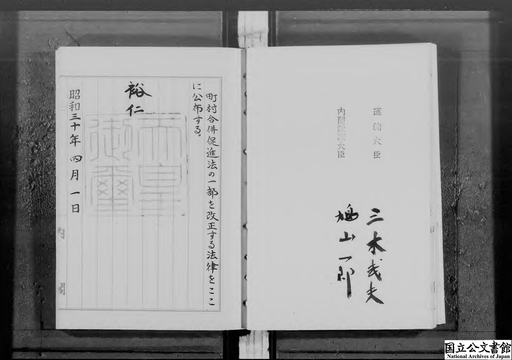 町村合併促進法の一部を改正する法律をここ
に公布する。
裕仁
天皇
御璽
昭和三十年四月一日
内閣
運輸大臣
三木武夫
内閣総理大臣
鳩山一郎
国立公文書館
National Archives of Japan